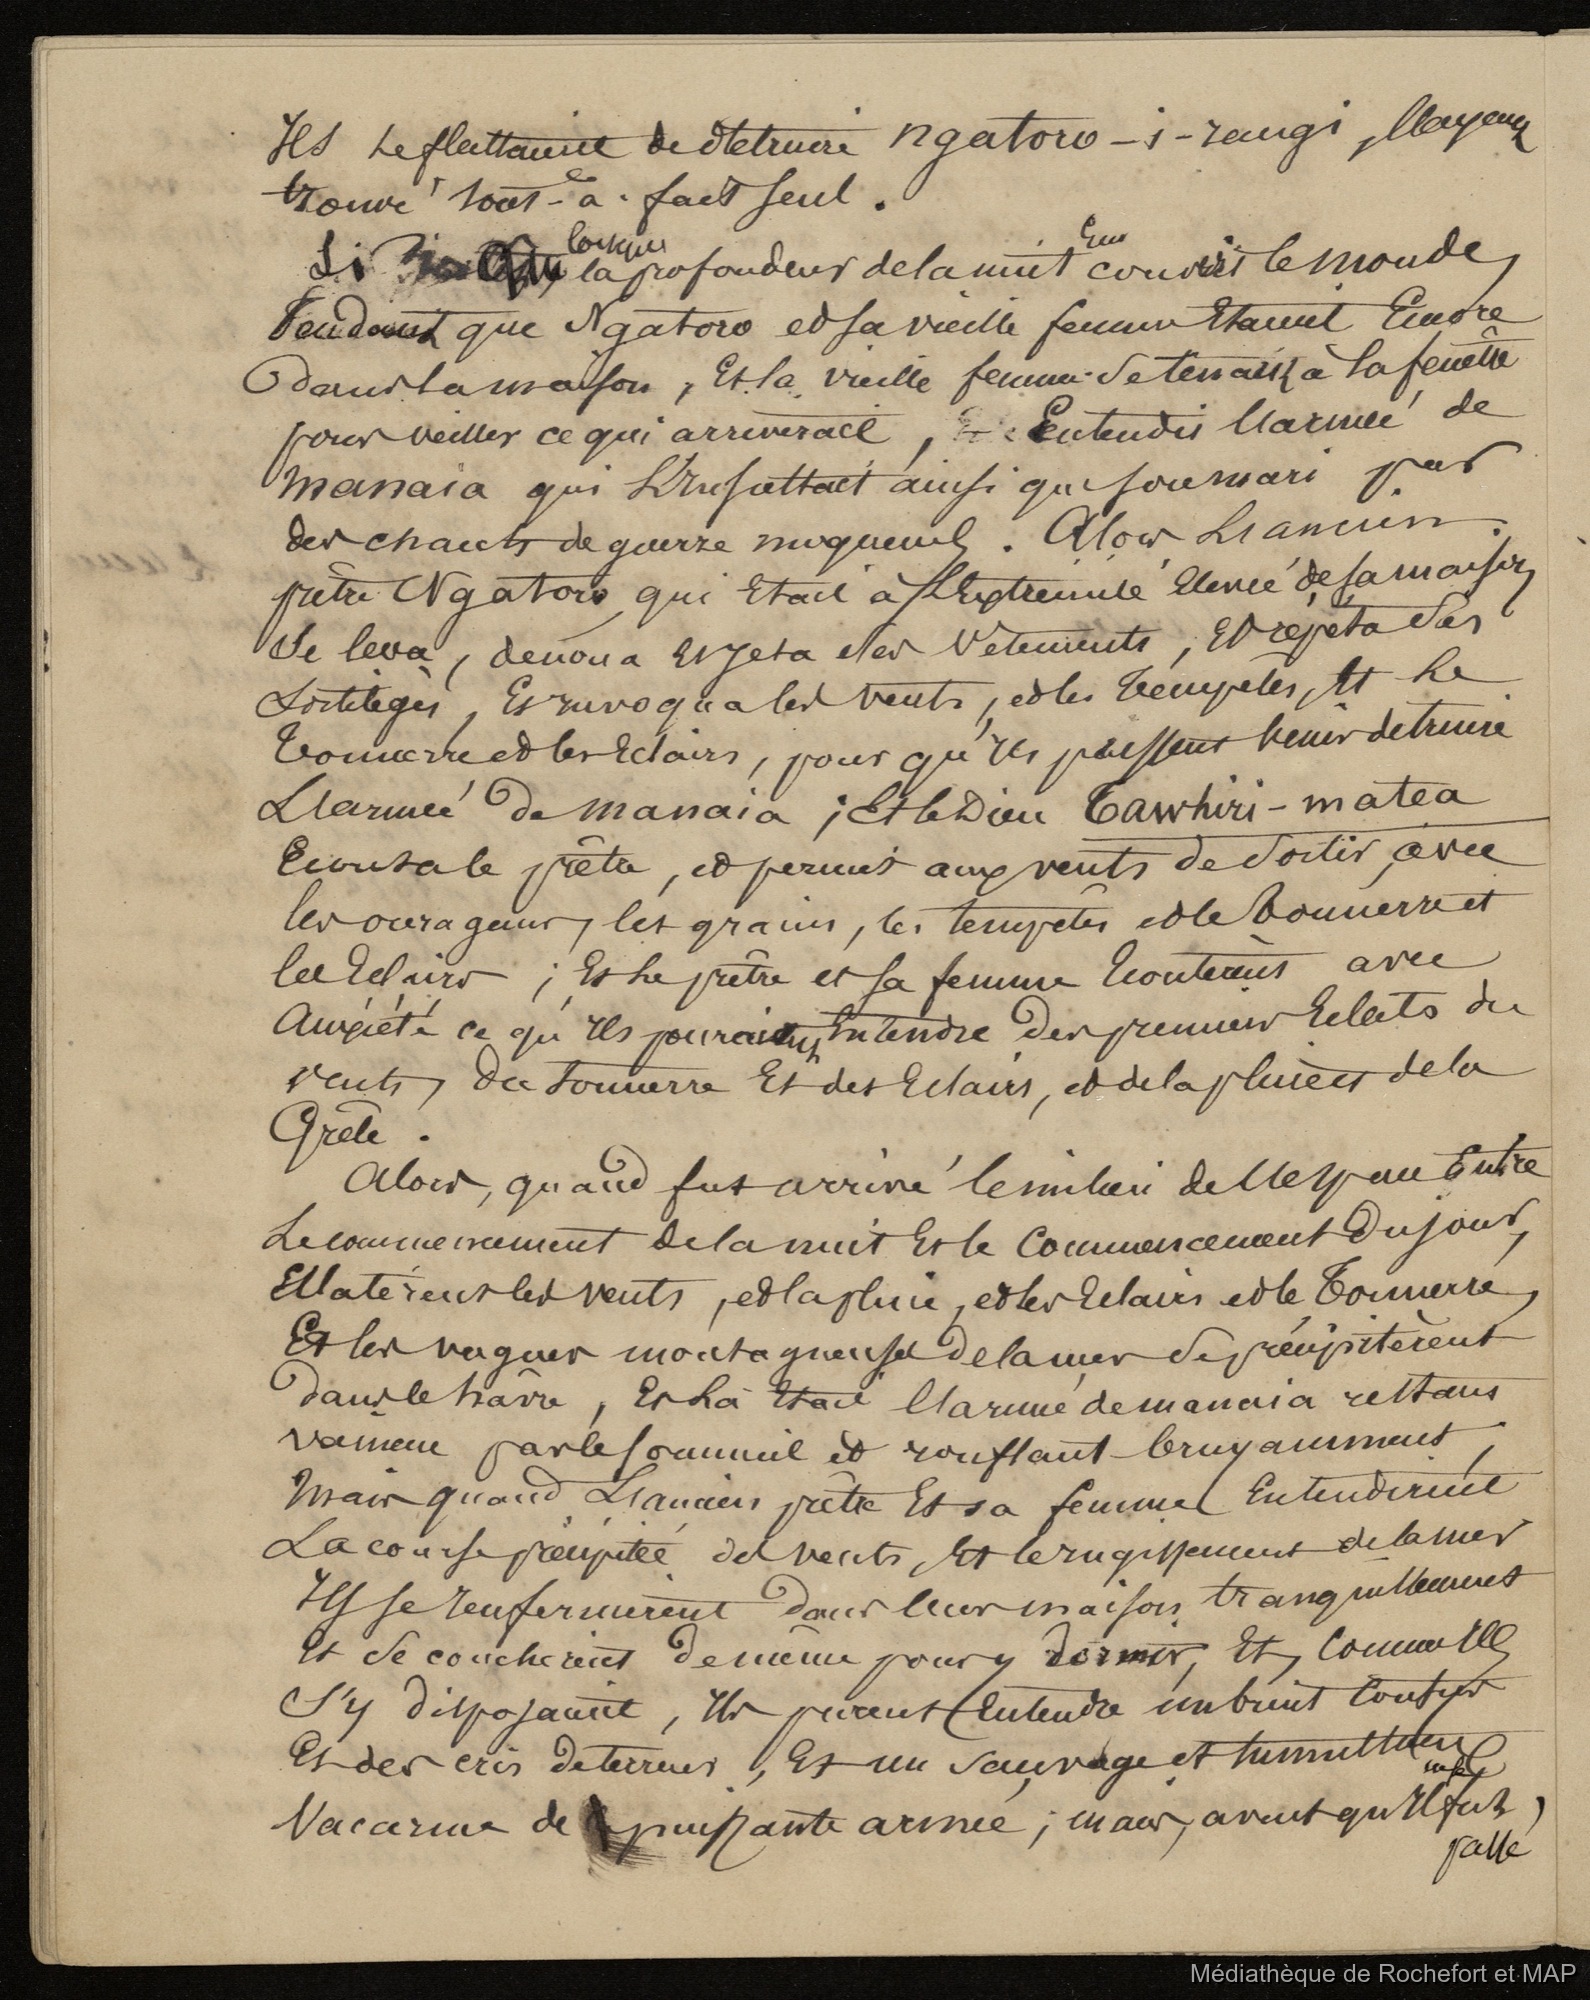 Ils se flattaient de détruire Ngatoro-i-rangi, l'layant
trouvé tout-à-fait seul.
Si lorsque la profondeur de la nuit eut couvert le monde,
Pendant que Ngatoro et sa vieille femme Etaient Encore
dans la maison, Et la vieille femme se tenait à la fenêtre
pour veiller ce qui arriverait, Entendit l'armée de
manaia qui l'insultait ainsi que son mari par
des chants de guerre moqueurs. Alors L'ancien
prêtre Ngatoro, qui Etait à l'Extrémité Elevée de sa maison,
se leva, denoua Et jeta ses vêtements, Et répéta ses
sortilèges, Et invoqua les vents, et les tempêtes, Et le
Tonnerre et les Eclairs, pour qu'ils puissent venir detruire
L'armée de manaia; Et le Dieu Tawhiri-matea
Ecouta le prêtre, et permit aux vents de sortir, avec
les ouragans, les grains, les tempêtes et le tonnerre et
les Eclairs; Et le prêtre et sa femme Ecoutèrent avec
Anxiété ce qu'ils pouraient Entendre des premiers Eclats du
vent, du tonnerre Et des Eclairs, et de la pluie et de la
Grêle.
Alors, quand fut arrivé le milieu de l'espace Entre
Le commencement de la nuit Et le Commencement du jour,
Eclatèrent les vents, et la pluie, et les Eclairs et le Tonnerre,
Et les vagues montagneuses de la mer se précipitèrent
dans le hâvre, Et là Etait l'armée de manaia restant
vaincue par le sommeil et ronflant bruyamment,
Mais quand L'ancien prêtre Et sa femme Entendirent
La course précipitée des vents, Et le rugissement de la mer
Ils se renfermèrent dans leur maison tranquillement
Et se couchèrent de même pour y dormir, Et, Comme Ils
S'y disposaient, Ils purent Entendre un bruit Confus
Et des cris de terreur, Et un sauvage et tumultueux
Vacarme de puissante armée; mais, avant qu'il fut
passé